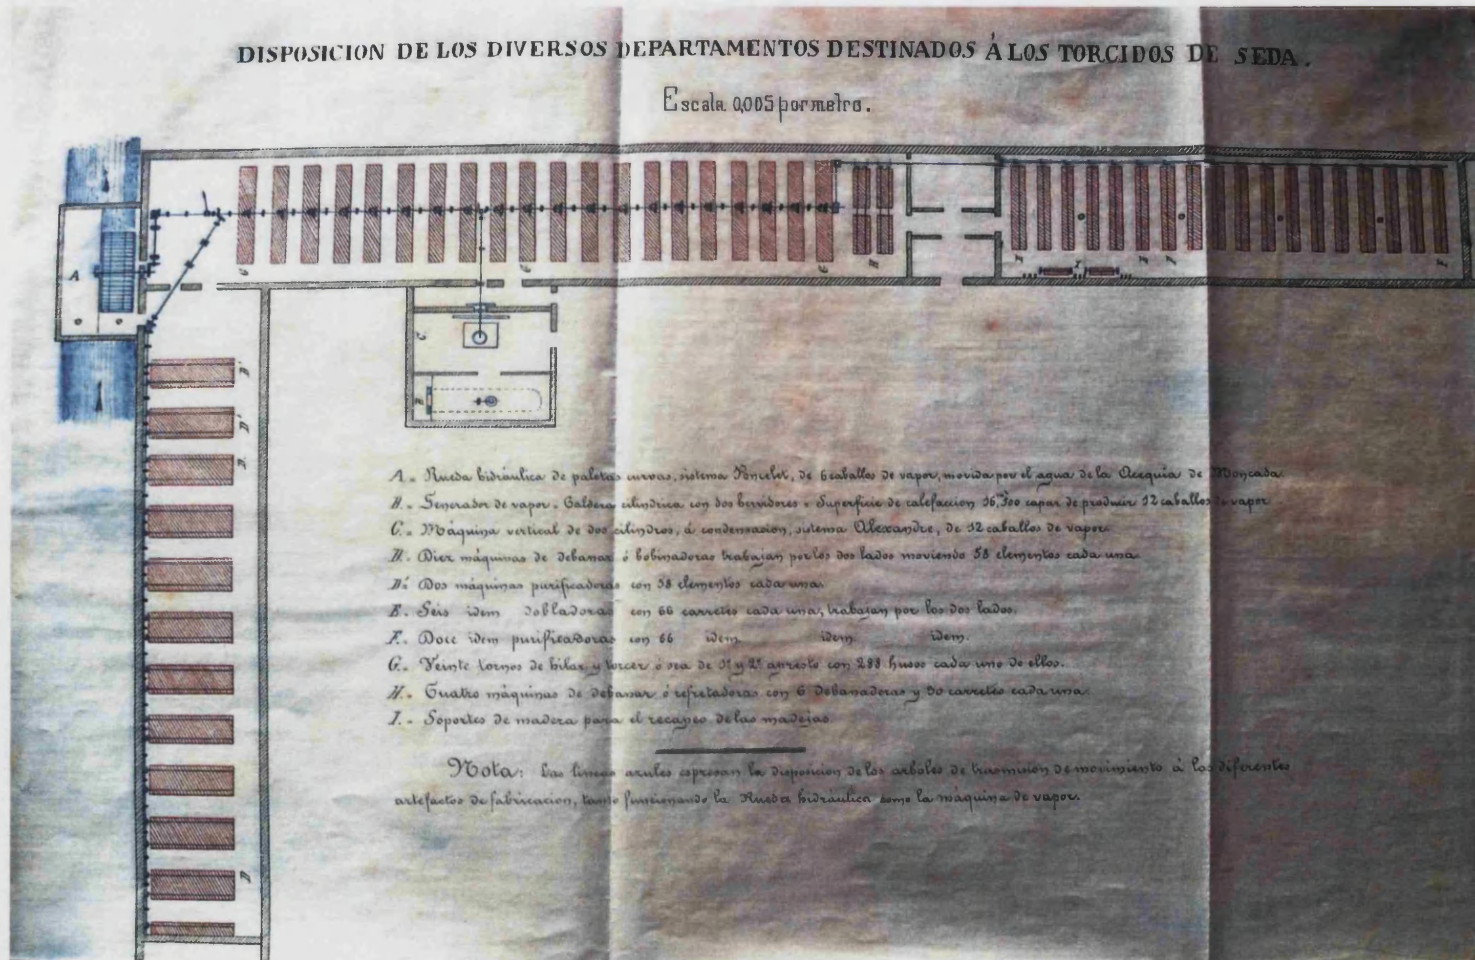 DISPOSICION DE LOS DIVERSOS DEPARTAMENTOS DESTINADOS Á LOS TORCIDOS DE SEDA.
Escala 0,005 por metro.
A.- Rueda hidráulica de paletas curvas, sistema Poncelet, de 6 caballos de vapor, movida por el agua de la Acequia de Moncada
B.- Generador de vapor - Caldera cilindrica con dos hervidores - Superficie de calefaccion capaz de producir 12 caballos de vapor
C.- Máquina vertical de dos cilindros, á condensacion, sistema Alexandre, de 12 caballos de vapor.
D.- Diez máquinas de debanar ó bobinadoras trabajan por los dos lados moviendo 58 elementos cada una
D'.- Dos máquinas purificadoras con 58 elementos cada una.
E.- Seis idem dobladoras con 66 carretes cada una, trabajan por los dos lados.
F.- Doce idem purificadoras con 66 idem. idem. idem.
G.- Veinte tornos de hilar y torcer ó sea de 1º y 2º apresto con 288 husos cada uno de ellos.
H.- Cuatro máquinas de debanar ó refretadoras con 6 debanadoras y 30 carretes cada una.
I.- Soportes de madera para el recapeo de las madejas
Nota: Las lineas azules espresan la disposicion de los arboles de trasmision de movimiento á los diferentes
artefactos de fabricacion, tanto funcionando la Rueda hidráulica como la máquina de vapor.
A
G
G
G
H
C
B
D'
D'
D
D
F
I
E
F
F